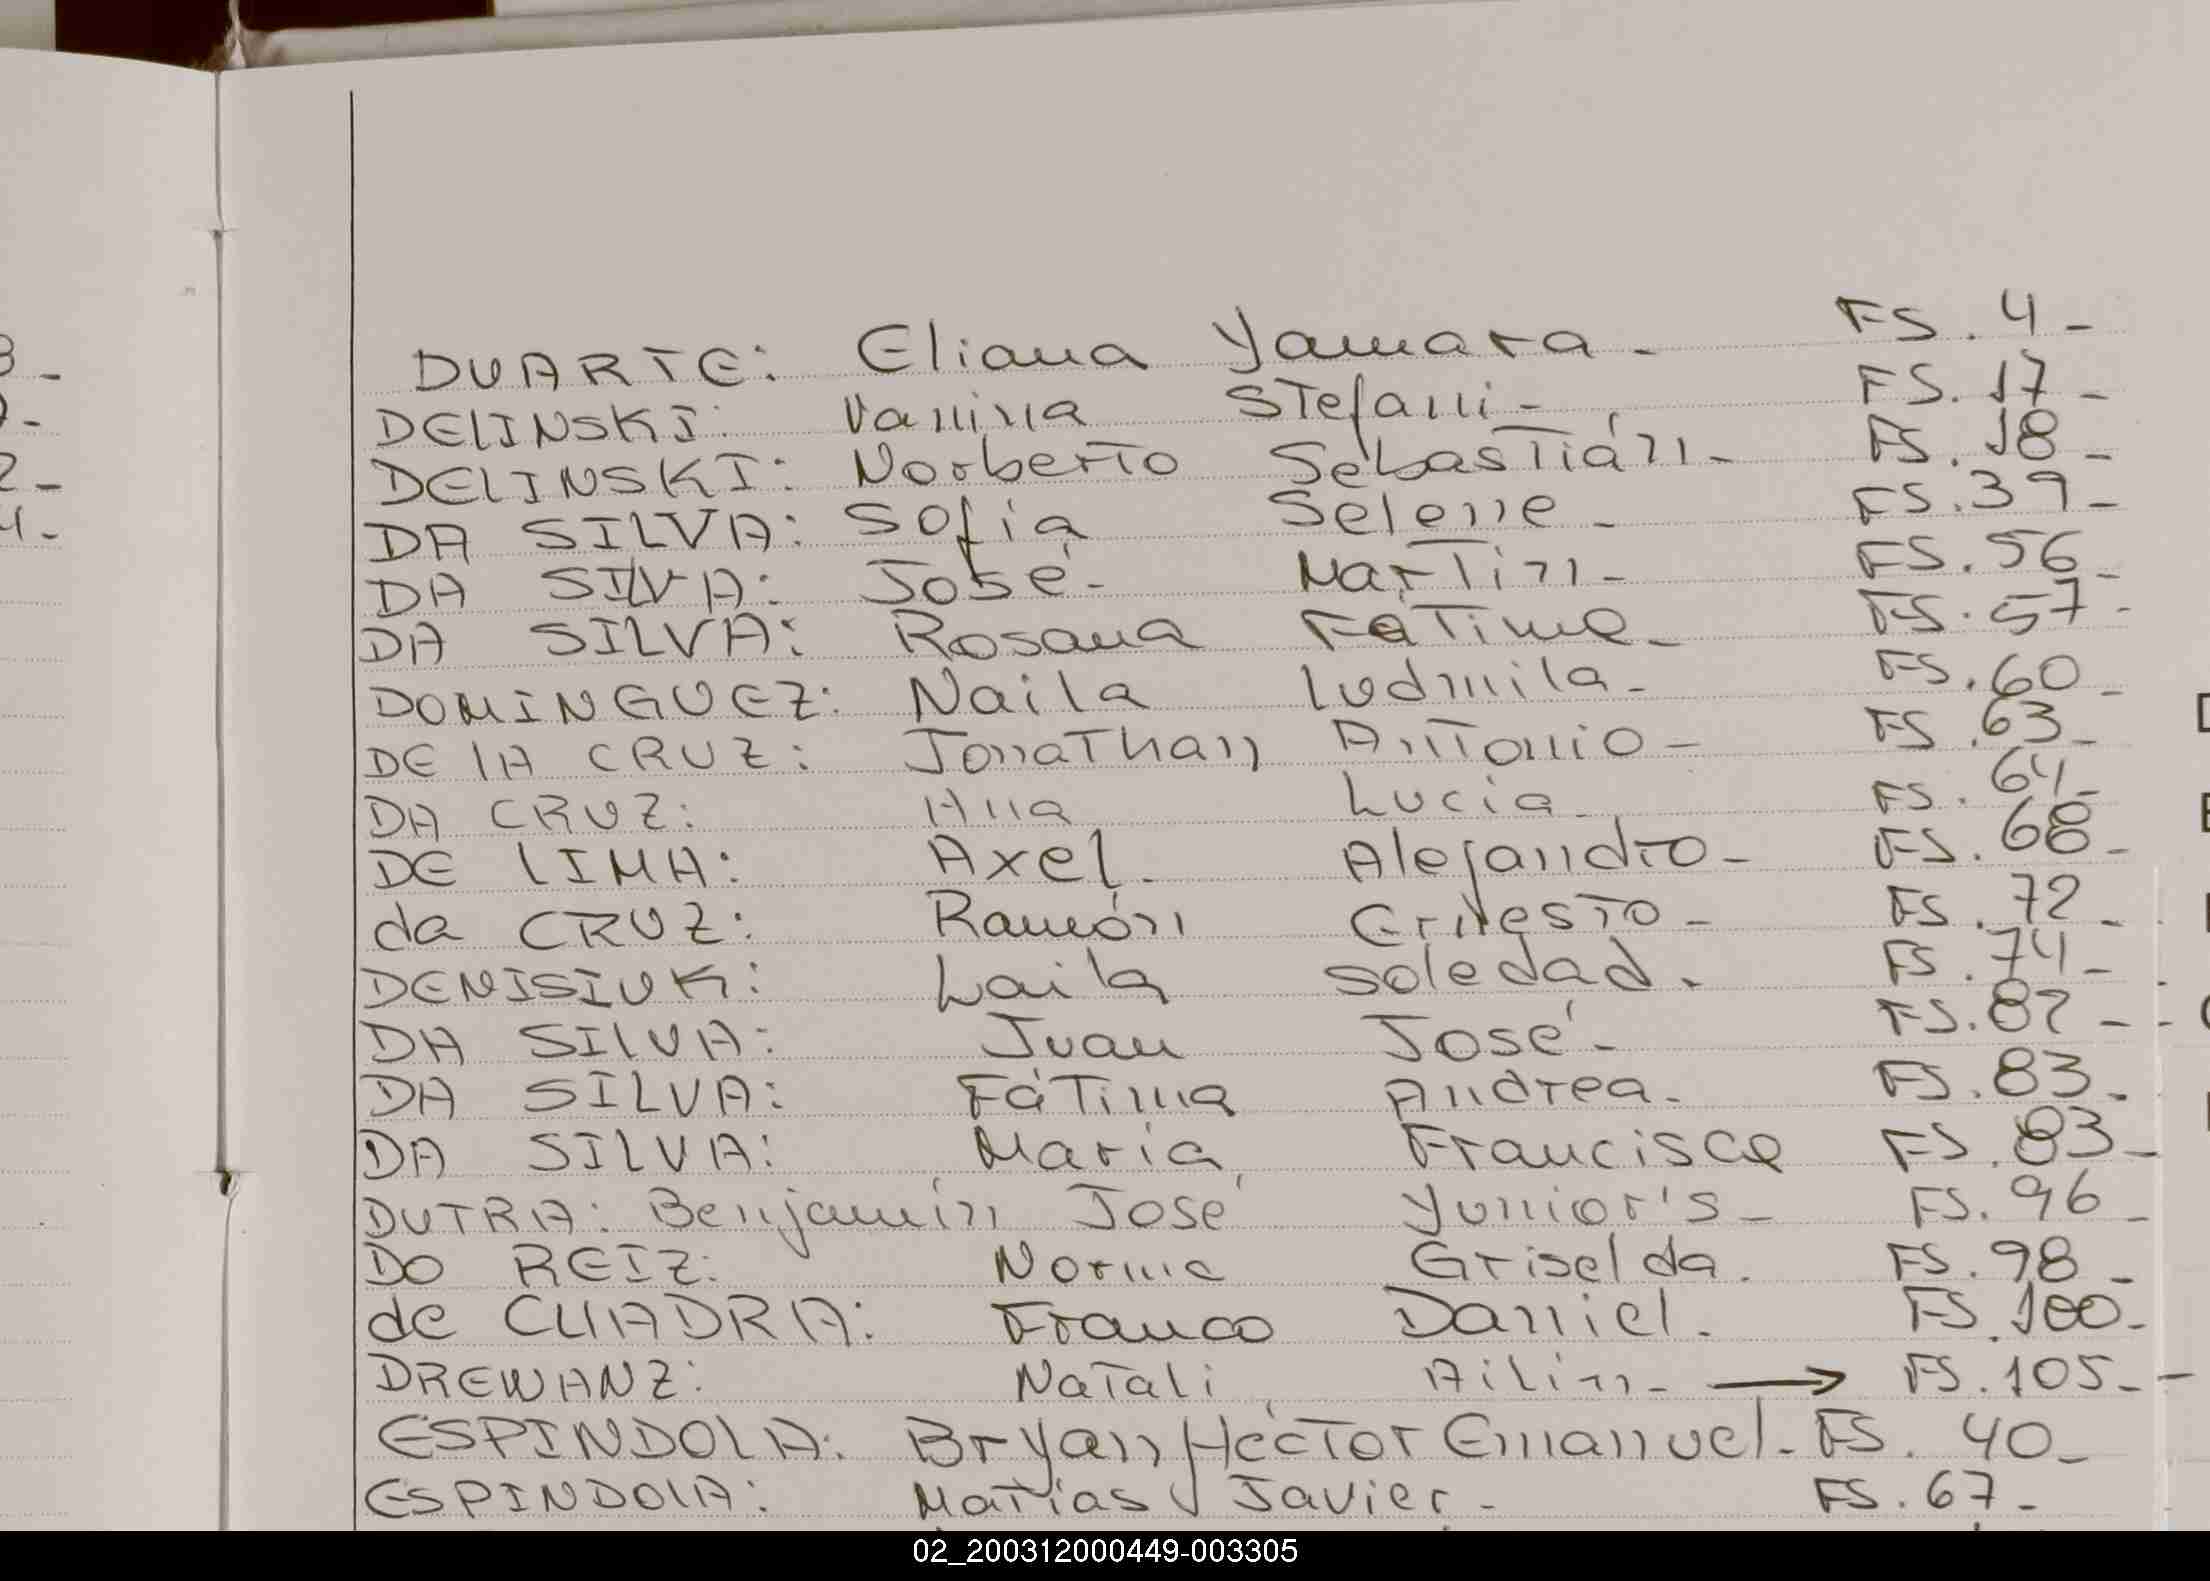 DUARTE: Eliana Yamara - FS. 4 -
DELINSKI: Vanina Stefani - FS. 17 -
DELINSKI: Norberto Sebastián - FS. 18 -
DA SILVA: Sofia Selene - FS. 39 -
DA SILVA: José - Martin - FS. 56 -
DA SILVA: Rosana Fátima - FS. 57 -
DOMINGUEZ: Naila Ludmila - FS. 60 -
DE LA CRUZ: Jonathan Antonio - FS. 63 -
DA CRUZ: Ana Lucía - FS. 64 -
DE LIMA: Axel - Alejandro - FS. 68 -
da CRUZ: Ramón Ernesto - FS. 72 -
DENISIUK: Laila Soledad. FS. 74 -
DA SILVA: Juan José - FS. 82 -
DA SILVA: Fátima Andrea. FS. 83 -
DA SILVA: María Francisca FS. 83 -
DUTRA: Benjamín José Yunior's - FS. 96 -
DO REIZ: Norma Griselda. FS. 98 -
de CUADRA: Franco Daniel. FS. 100 -
DREWANZ: Natali Ailín - → FS. 105 -
ESPINDOLA: Bryan Héctor Emanuel - FS. 40 -
ESPINDOLA: Matías Javier - FS. 67 -
02_200312000449-003305